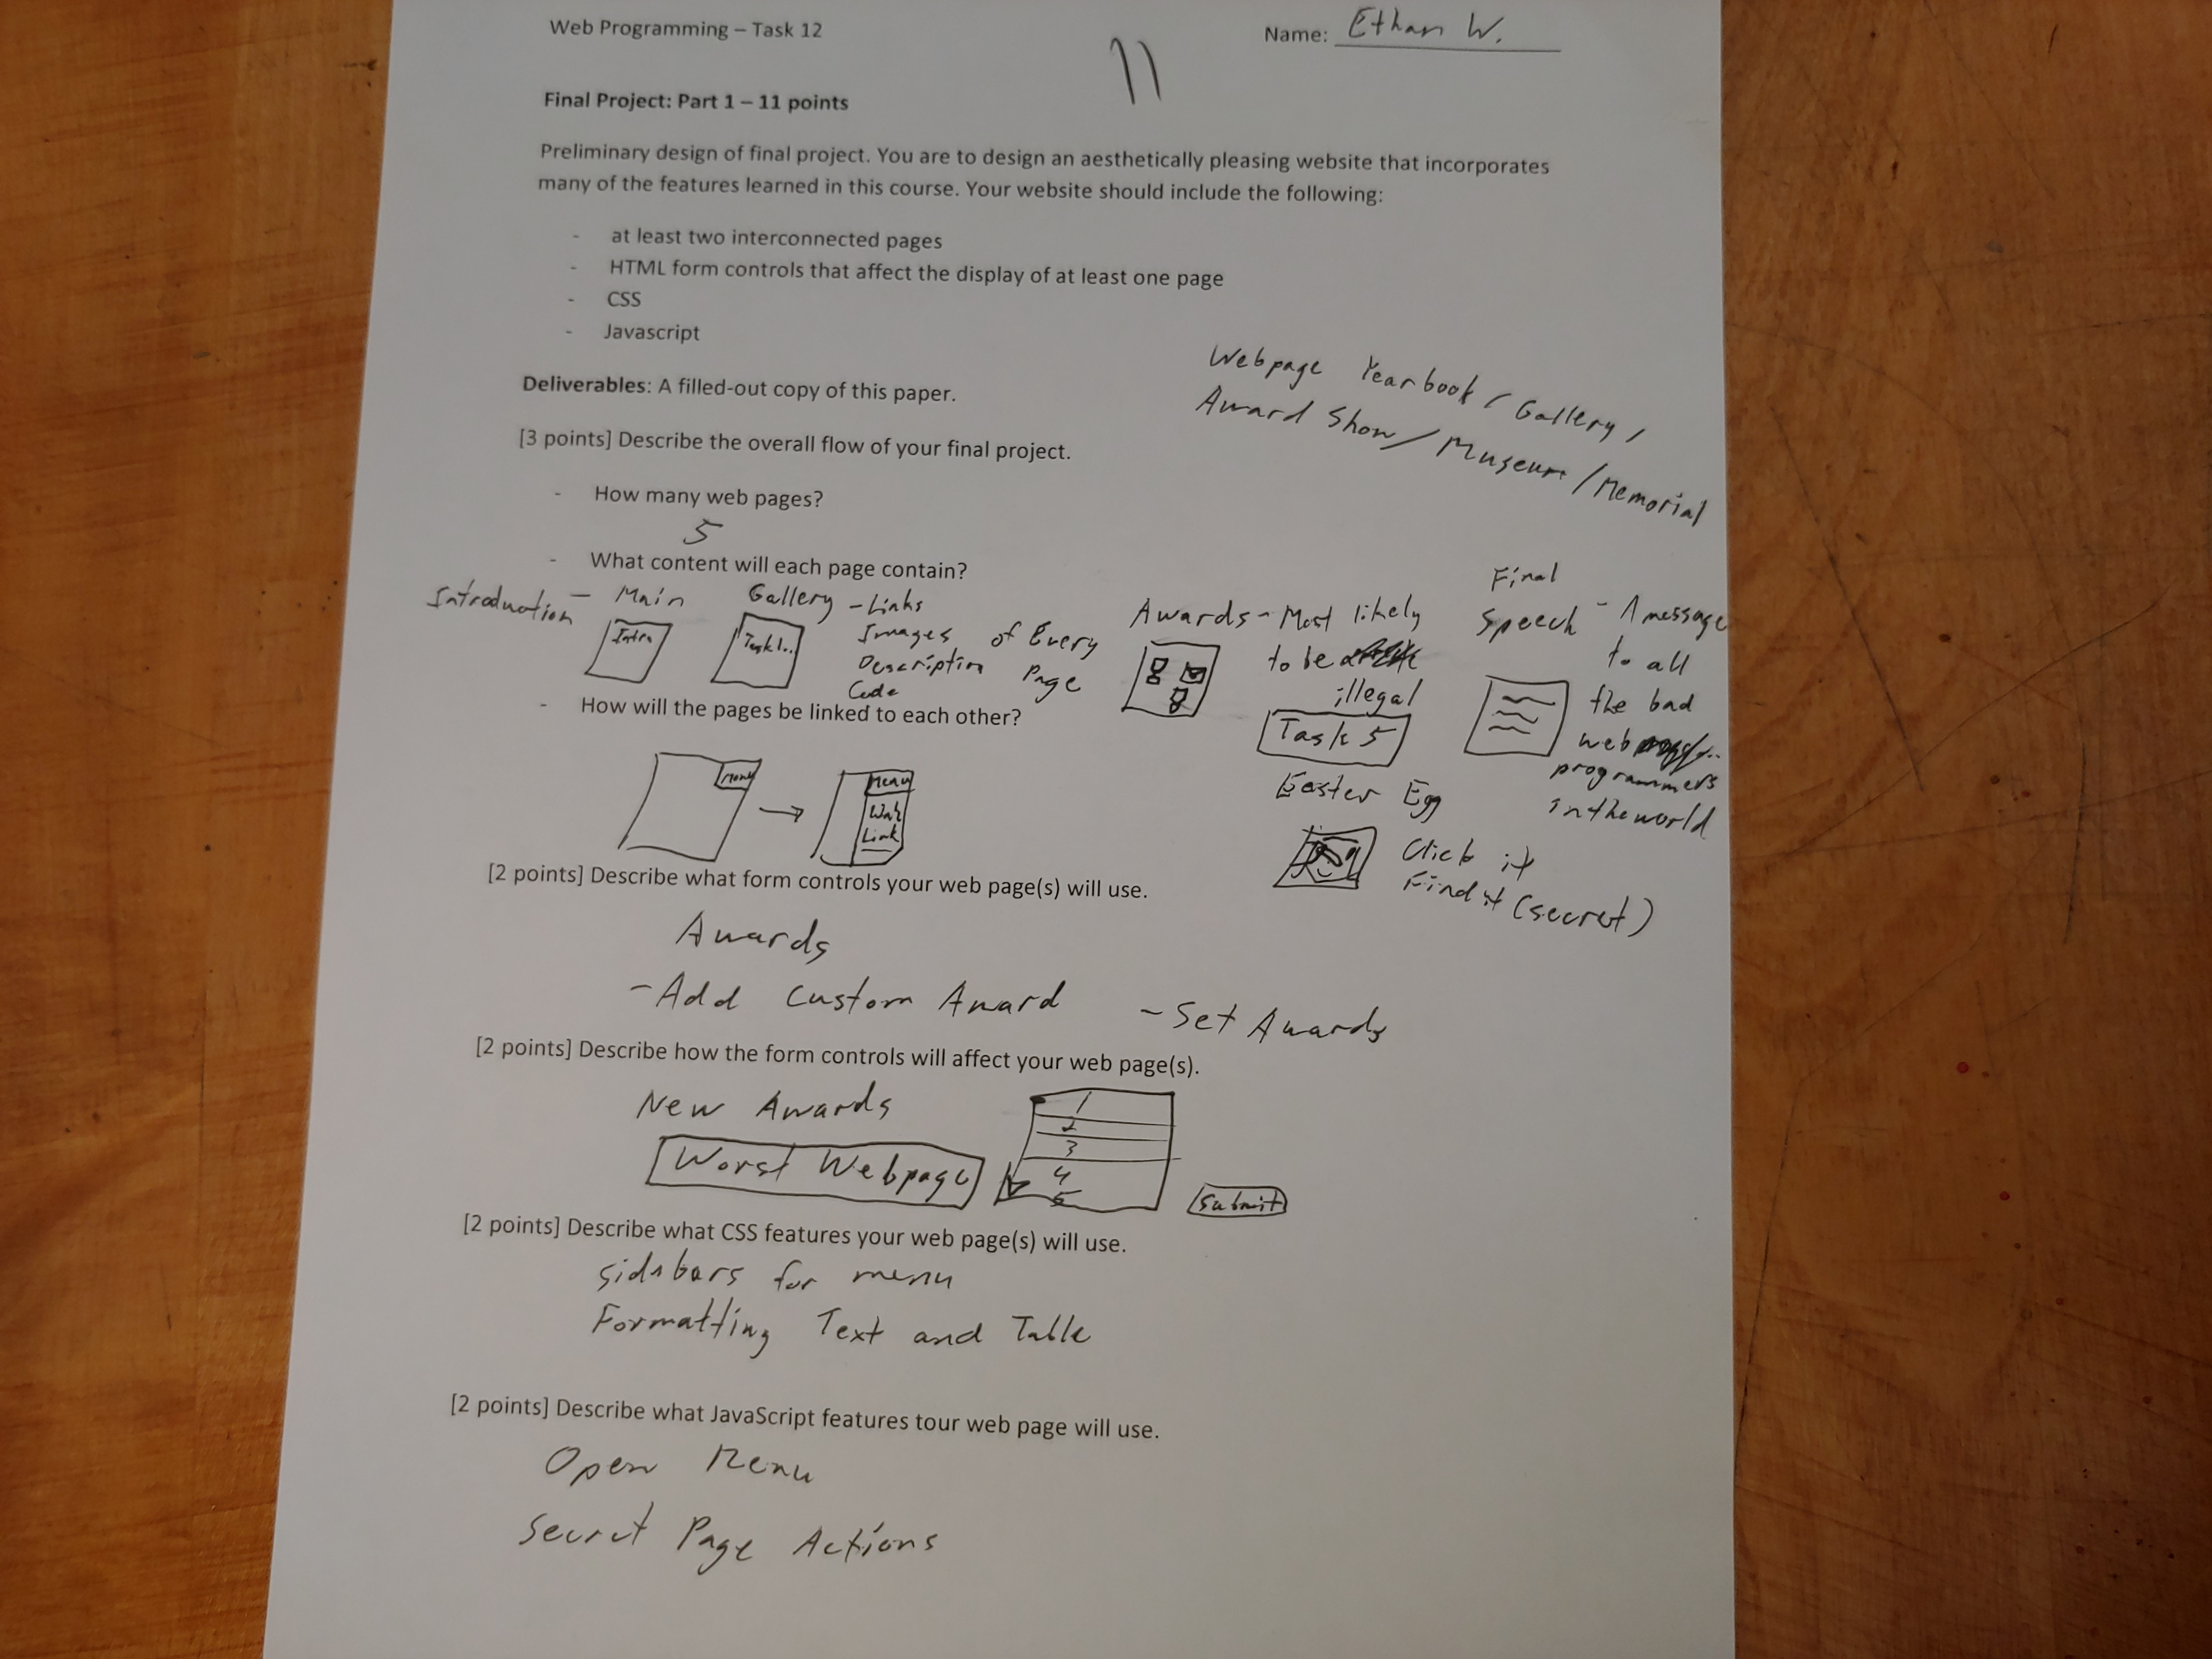 Web Programming – Task 12
Name: Ethan W.
11
Final Project: Part 1 – 11 points
Preliminary design of final project. You are to design an aesthetically pleasing website that incorporates
many of the features learned in this course. Your website should include the following:
- at least two interconnected pages
- HTML form controls that affect the display of at least one page
- CSS
- Javascript
Webpage Yearbook / Gallery /
Award Show / Museum / Memorial
Deliverables: A filled-out copy of this paper.
[3 points] Describe the overall flow of your final project.
- How many web pages?
5
- What content will each page contain?
Introduction – Main
Intro
Gallery – Links
Images of Every
Description Page
Code
Task 1..
Awards – Most likely
to be
illegal
Task 5
Final
Speech – A message
to all
the bad
web
programmers
in the world
Easter Egg
Click it
Find it (secret)
- How will the pages be linked to each other?
Menu
Menu
Link
[2 points] Describe what form controls your web page(s) will use.
Awards
– Add Custom Award
– Set Awards
[2 points] Describe how the form controls will affect your web page(s).
New Awards
Worst Webpage
1
2
3
4
5
Submit
[2 points] Describe what CSS features your web page(s) will use.
sidebars for menu
Formatting Text and Table
[2 points] Describe what JavaScript features tour web page will use.
Open Menu
Secret Page Actions